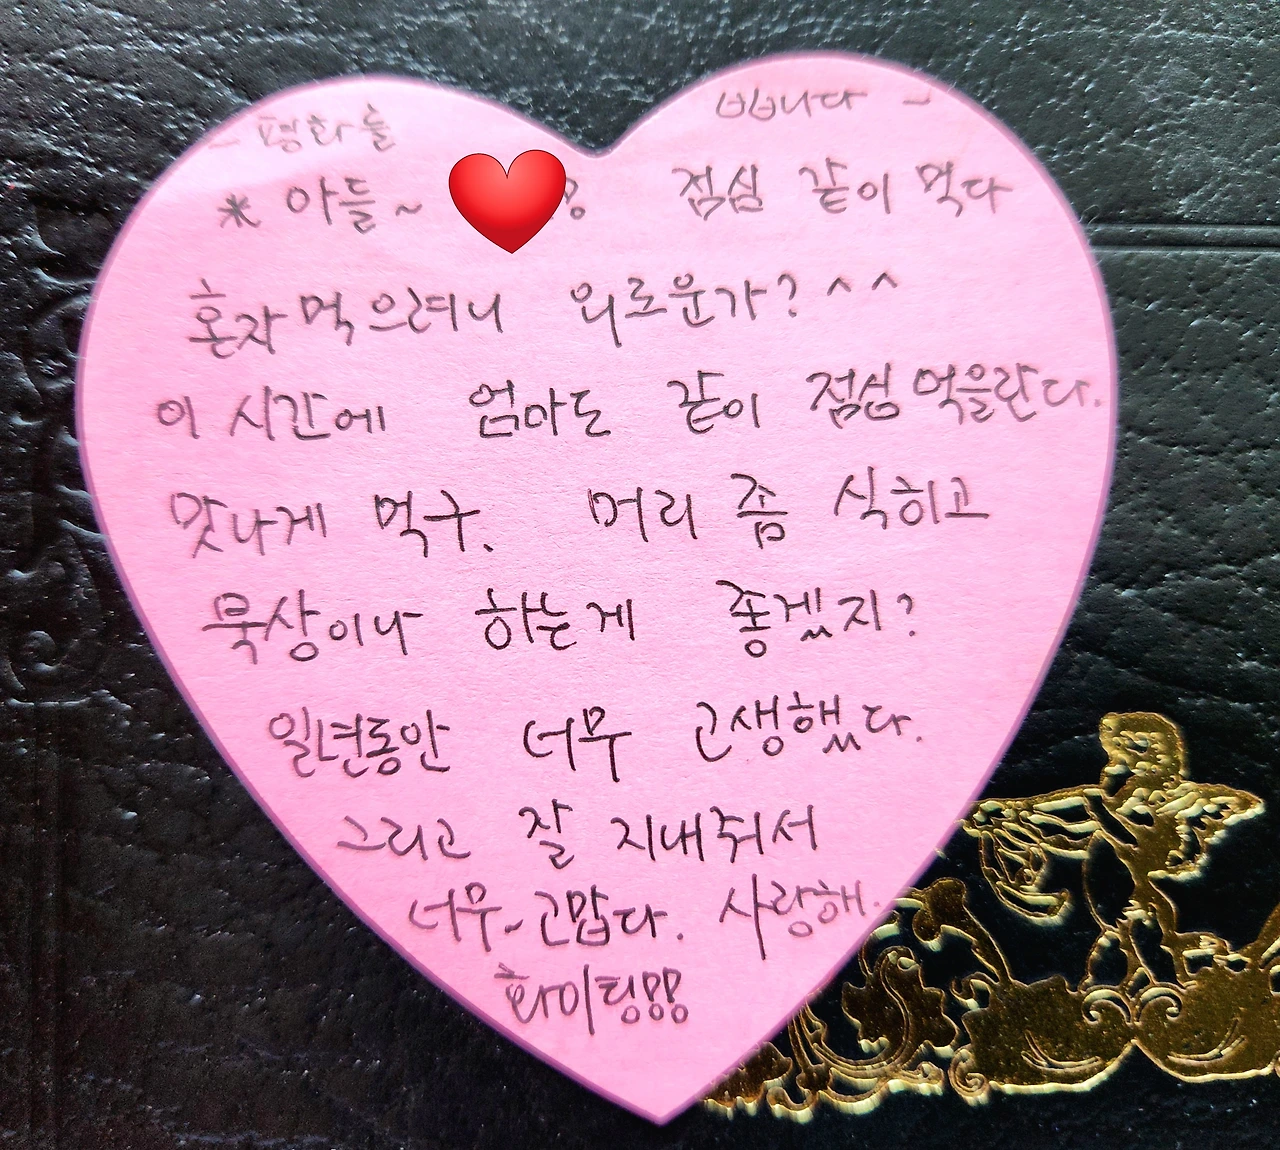 ~ 평화를 빕니다 ~
* 아들~ 점심 같이 먹다
혼자 먹으려니 외로운가? ^^
이 시간에 엄마도 같이 점심 먹을란다.
맛나게 먹구. 머리 좀 식히고
묵상이나 하는게 좋겠지?
일년동안 너무 고생했다.
그리고 잘 지내줘서
너무~고맙다. 사랑해.
화이팅!!